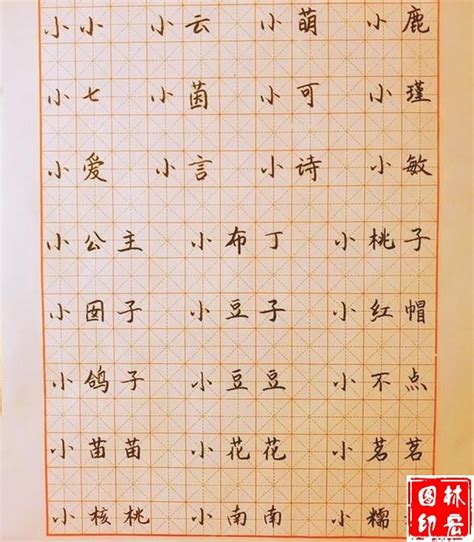 小小 小云 小萌 小鹿
小七 小茵 小可 小瑾
小爱 小言 小诗 小敏
小公主 小布丁 小桃子
小囡子 小豆子 小红帽
小鸽子 小豆豆 小不点
小苗苗 小花花 小茗茗
小核桃 小南南 小糯